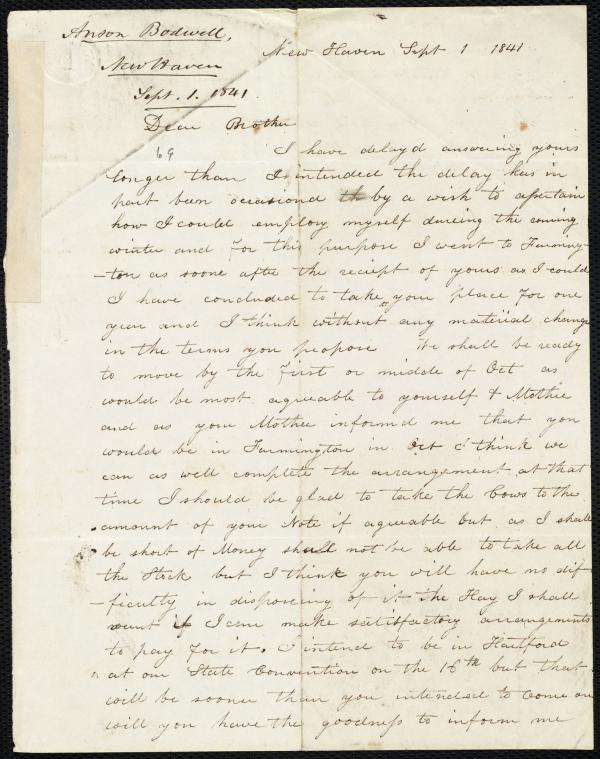 Anson Bodwell,
New Haven
Sept. 1. 1841.
New Haven Sept 1 1841
Dear Brother
69
I have delayd answering yours
longer than I intended the delay has in
part been occasiond th by a wish to assertain
how I could employ myself dureing the coming
winter and for this purpose I went to Farming-
-ton as soone after the reciept of yours as I could
I have concluded to take your place for one
year and I think without any material change
in the terms you propose We shall be ready
to move by the first or middle of Oct as
would be most agreable to yourself & Mother
and as your Mother informd me that you
would be in Farmington in Oct I think we
can as well complete the arrangement at that
time I should be glad to take the Cows to the
amount of your Note if agreable but as I shall
be short of Money shall not be able to take all
the Stock but I think you will have no dif-
-ficulty in disposeing of it the Hay I shall
want if I can make satisfactory arrangements
to pay for it. I intend to be in Hartford
at our State Convention on the 16th but that
will be sooner than you intended to come on
will you have the goodness to inform me